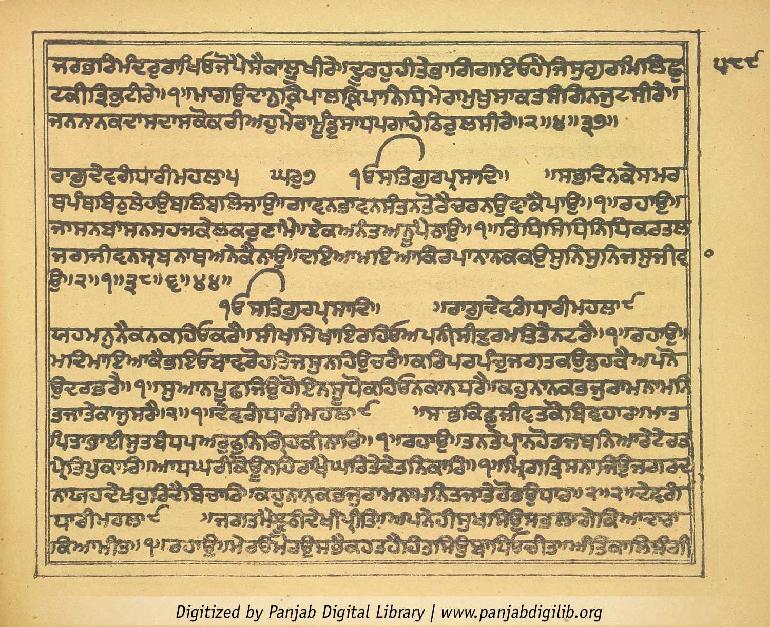 ਜਰਭਰਿਮੰਦਰੁਰਾਖਿਓਜੋਪੈਸੈਕਾਲੂਖੀਰੇ॥ਦੂਰਹੁਹੀਤੇਭਾਗਿਗਇਓਹੈਜਿਸੁਗੁਰਮਿਲਿਛੁ
ਟਕੀਤ੍ਰਿਕੁਟੀਰੇ॥੧॥ਮਾਗਉਦਾਨੁਕ੍ਰਿਪਾਲਕ੍ਰਿਪਾਨਿਧਿਮੇਰਾਮੁਖੁਸਾਕਤਸੰਗਿਨਜੁਟਸੀਰੇ॥
ਜਨਨਾਨਕਦਾਸਦਾਸਕੋਕਰੀਅਹੁਮੇਰਾਮੂੰਡੁਸਾਧਪਗਾਹੇਠਿਰੁਲਸੀਰੇ॥੨॥੪॥੩੭॥
ਰਾਗੁਦੇਵਗੰਧਾਰੀਮਹਲਾ੫ ਘਰੁ੭ ੴਸਤਿਗੁਰਪ੍ਰਸਾਦਿ॥ ॥ਸਭਦਿਨਕੇਸਮਰ
ਥਪੰਥਬਿਠੁਲੇਹਉਬਲਿਬਲਿਜਾਉ॥ਗਾਵਨਭਾਵਨਸੰਤਨਤੋਰੈਚਰਨਉਵਾਕੈਪਾਉ॥੧॥ਰਹਾਉ॥
ਜਾਸਨਬਾਸਨਸਹਜਕੇਲਕਰੁਣਾਮੈਏਕਅਨੰਤਅਨੂਪੈਠਾਉ॥੧॥ਰਿਧਿਸਿਧਿਨਿਧਿਕਰਤਲ
ਜਗਜੀਵਨਸ੍ਰਬਨਾਥਅਨੇਕੈਨਾਉ॥ਦਇਆਮਇਆਕਿਰਪਾਨਾਨਕਕਉਸੁਨਿਸੁਨਿਜਸੁਜੀਵਾ
ਉ॥੨॥੧॥੩੮॥੬॥੪੪॥
ੴਸਤਿਗੁਰਪ੍ਰਸਾਦਿ॥ ॥ਰਾਗੁਦੇਵਗੰਧਾਰੀਮਹਲਾ੯
ਯਹਮਨੁਨੈਕਨਕਹਿਓਕਰੈ॥ਸੀਖਸਿਖਾਇਰਹਿਓਅਪਨੀਸੀਦੁਰਮਤਿਤੇਨਟਰੈ॥੧॥ਰਹਾਉ॥
ਮਦਿਮਾਇਆਕੈਭਇਓਬਾਵਰੋਹਰਿਜਸੁਨਹਿਉਚਰੈ॥ਕਰਿਪਰਪੰਚੁਜਗਤਕਉਡਹਕੈਅਪਨੋ
ਉਦਰੁਭਰੈ॥੧॥ਸੁਆਨਪੂਛਜਿਉਹੋਇਨਸੂਧੋਕਹਿਓਨਕਾਨਧਰੈ॥ਕਹੁਨਾਨਕਭਜੁਰਾਮਨਾਮਨਿ
ਤਜਾਤੇਕਾਜੁਸਰੈ॥੨॥੧॥ਦੇਵਗੰਧਾਰੀਮਹਲਾ੯ ॥ਸਭਕਿਛੁਜੀਵਤਕੋਬਿਵਹਾਰ॥ਮਾਤ
ਪਿਤਾਭਾਈਸੁਤਬੰਧਪਅਰੁਫੁਨਿਗ੍ਰਿਹਕੀਨਾਰਿ॥੧॥ਰਹਾਉ॥ਤਨਤੇਪ੍ਰਾਨਹੋਤਜਬਨਿਆਰੇਟੇਰਤ
ਪ੍ਰੇਤਿਪੁਕਾਰਿ॥ਆਧਘਰੀਕੋਊਨਹਿਰਾਖੈਘਰਿਤੇਦੇਤਨਿਕਾਰਿ॥੧॥ਮ੍ਰਿਗਤ੍ਰਿਸਨਾਜਿਉਜਗਰਚ
ਨਾਯਹਦੇਖਹੁਰਿਦੈਬਿਚਾਰਿ॥ਕਹੁਨਾਨਕਭਜੁਰਾਮਨਾਮਨਿਤਜਾਤੇਹੋਤਉਧਾਰ॥੨॥੨॥ਦੇਵਗੰ
ਧਾਰੀਮਹਲਾ੯ ॥ਜਗਤਮੈਝੂਠੀਦੇਖੀਪ੍ਰੀਤਿ॥ਅਪਨੇਹੀਸੁਖਸਿਉਸਭਲਾਗੇਕਿਆਦਾਰਾ
ਕਿਆਮੀਤ॥੧॥ਰਹਾਉ॥ਮੇਰਉਮੇਰਉਸਭੈਕਹਤਹੈਹਿਤਸਿਉਬਾਧਿਓਚੀਤ॥ਅੰਤਿਕਾਲਿਸੰਗੀ
Digitized by Panjab Digital Library | www.panjabdigilib.org